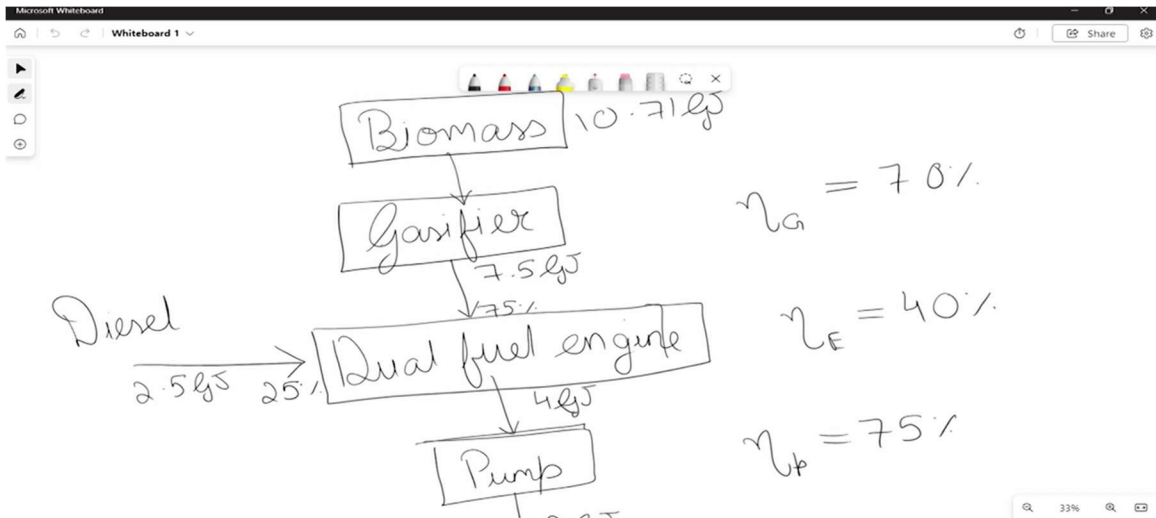 Microsoft Whiteboard
Whiteboard 1
Share
Biomass 10.71 GJ
Gasifier
η_G = 70%
7.5 GJ
75%
Diesel
2.5 GJ 25%
Dual fuel engine
η_E = 40%
4 GJ
Pump
η_p = 75%
33%